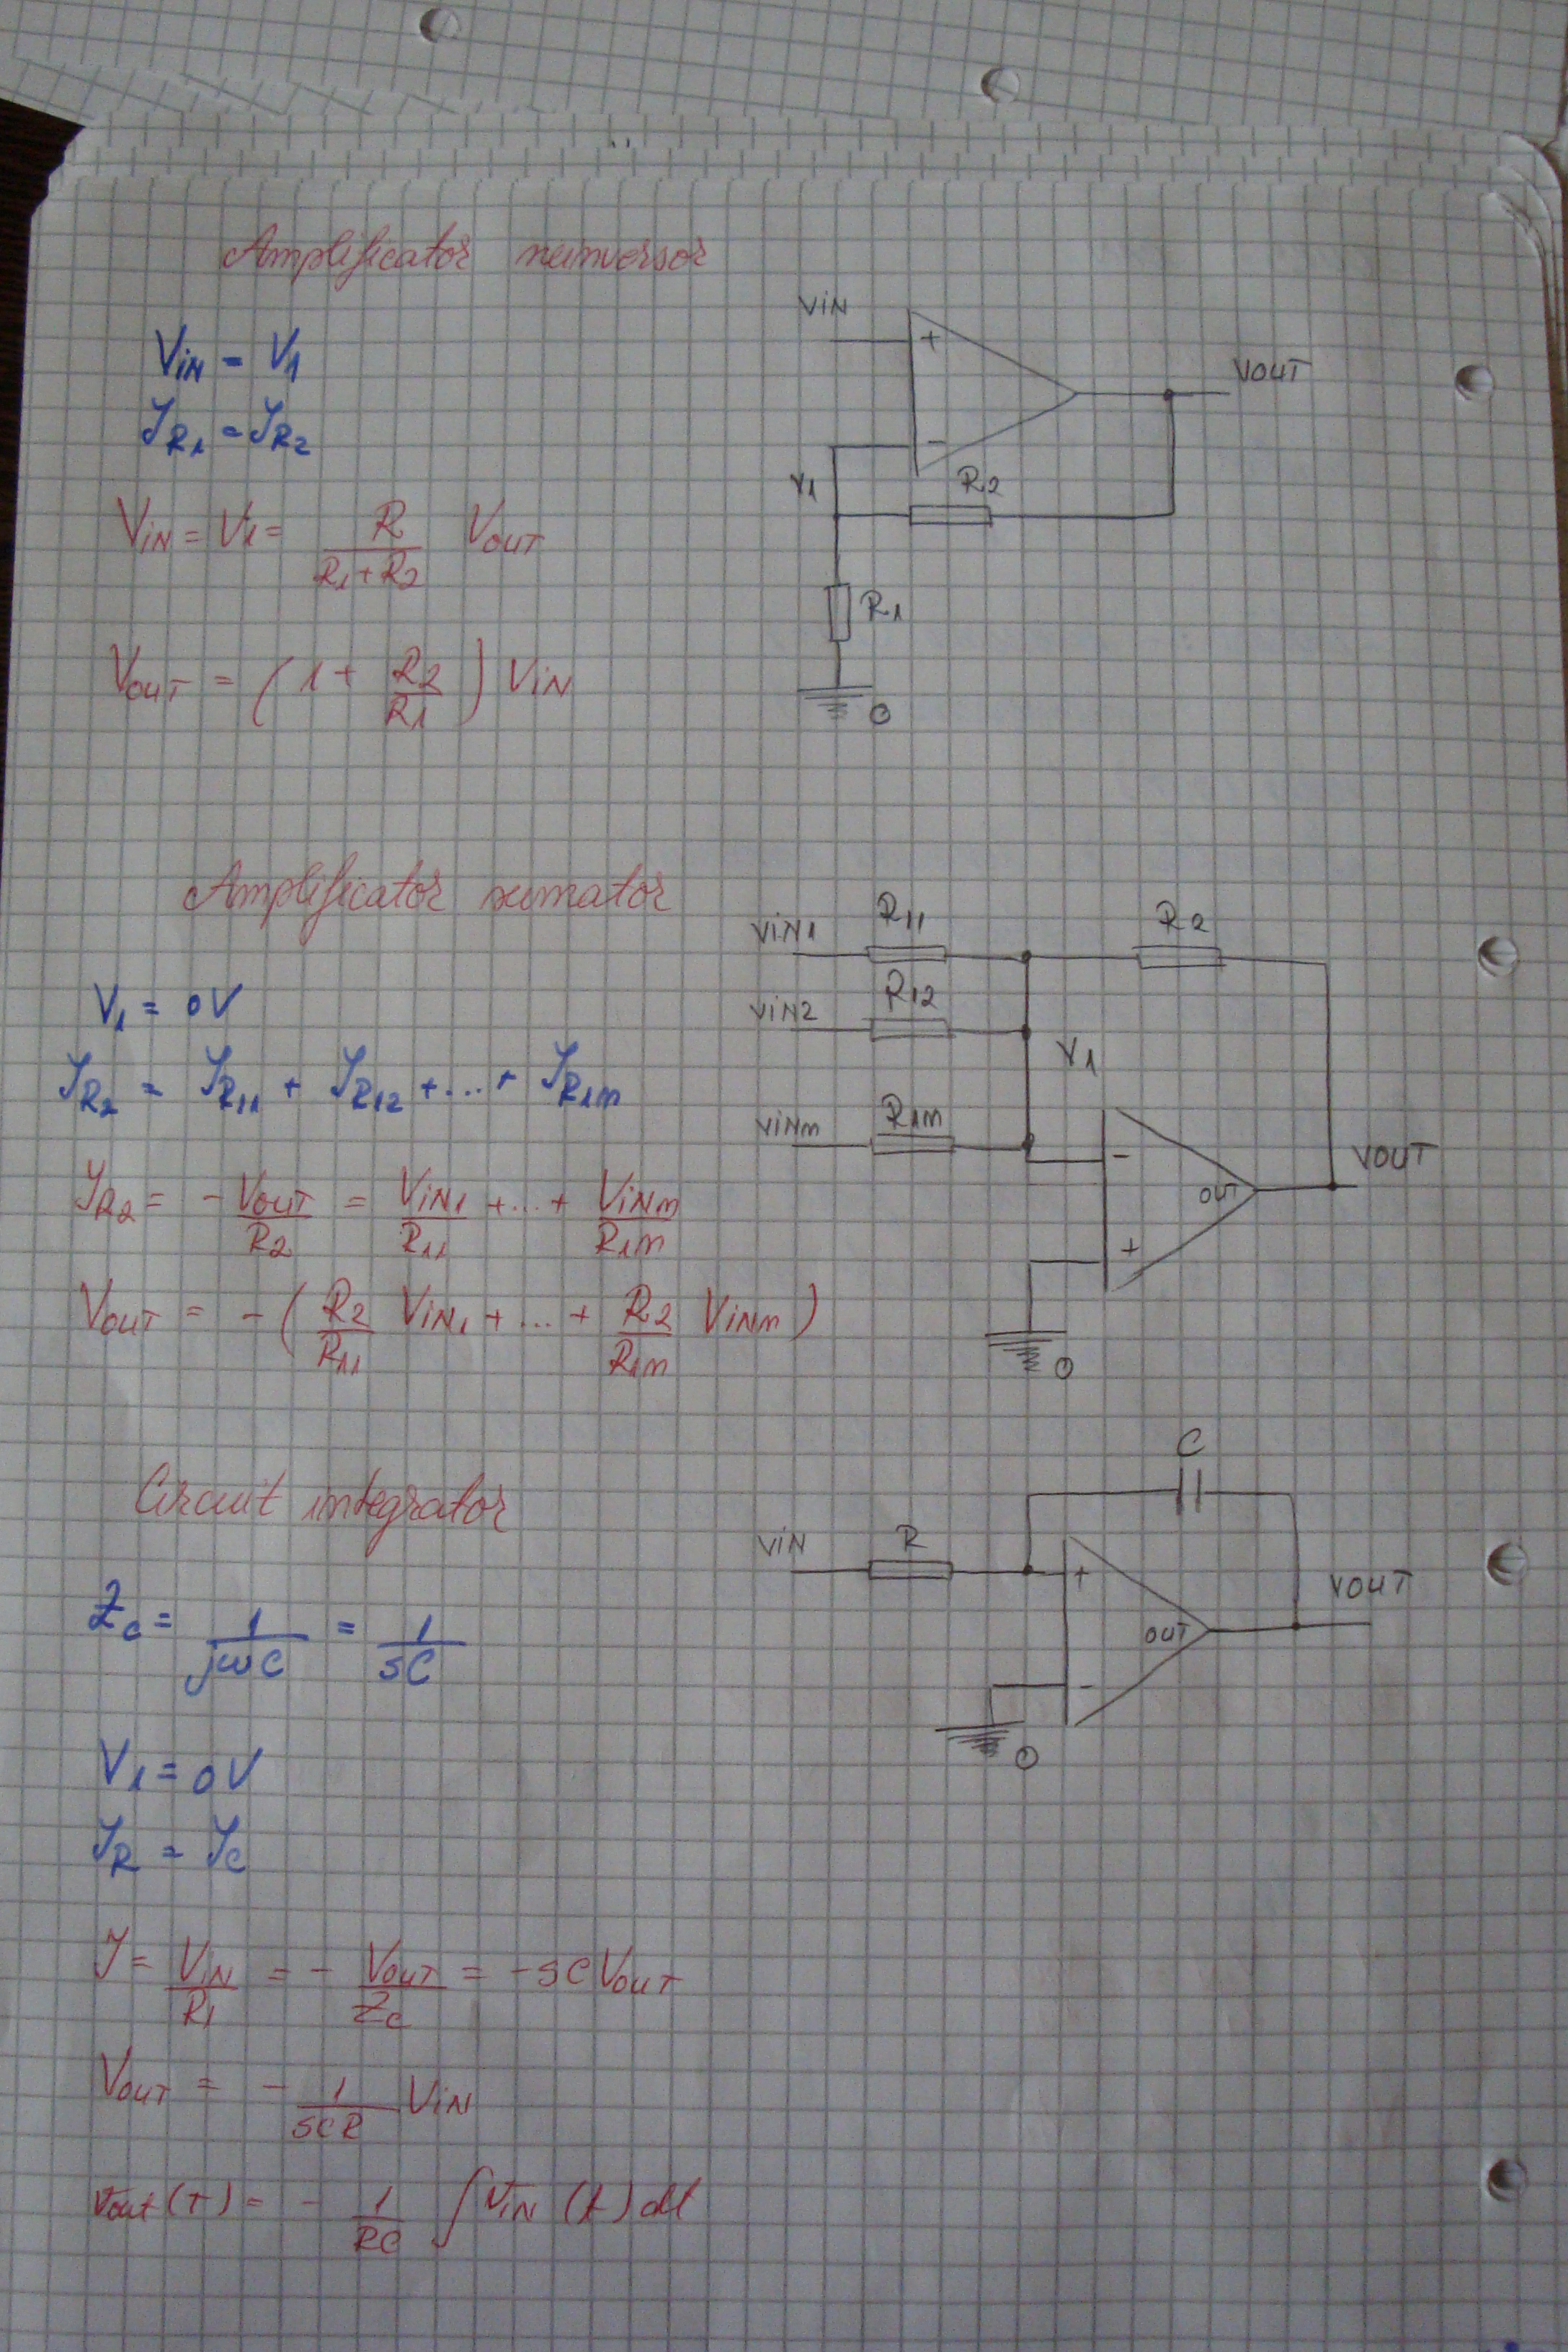 Amplificator neinversor
VIN = V1
IR1 = IR2
VIN = V1 = R / (R1+R2) VOUT
VOUT = (1 + R2/R1) VIN
VIN
+
VOUT
-
V1
R2
R1
0
Amplificator sumator
V1 = 0V
IR2 = IR11 + IR12 + ... + IR1m
IR2 = - VOUT/R2 = VIN1/R11 + ... + VINm/R1m
VOUT = - (R2/R11 VIN1 + ... + R2/R1m VINm)
VIN1 R11 R2
VIN2 R12
V1
VINm R1m
-
OUT VOUT
+
0
Circuit integrator
Zc = 1/jωC = 1/sC
V1 = 0V
IR = Ic
I = VIN/R1 = - VOUT/Zc = -sCVOUT
VOUT = - 1/sCR VIN
Vout(t) = - 1/RC ∫VIN (t) dt
C
VIN R
+
OUT VOUT
-
0